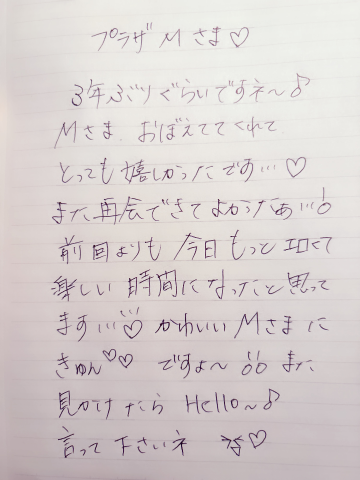 プラザMさま♡
3年ぶりぐらいですネ〜♪
Mさま、おぼえててくれて
とっても嬉しかったです…♡
また再会できてよかったぁ…!
前回よりも今日もっとエロくて
楽しい時間になったと思って
ます…♡ かわいいMさまに
きゅん♡♡ ですょ〜 また
見かけたら Hello〜♪
言って下さいネ ♡